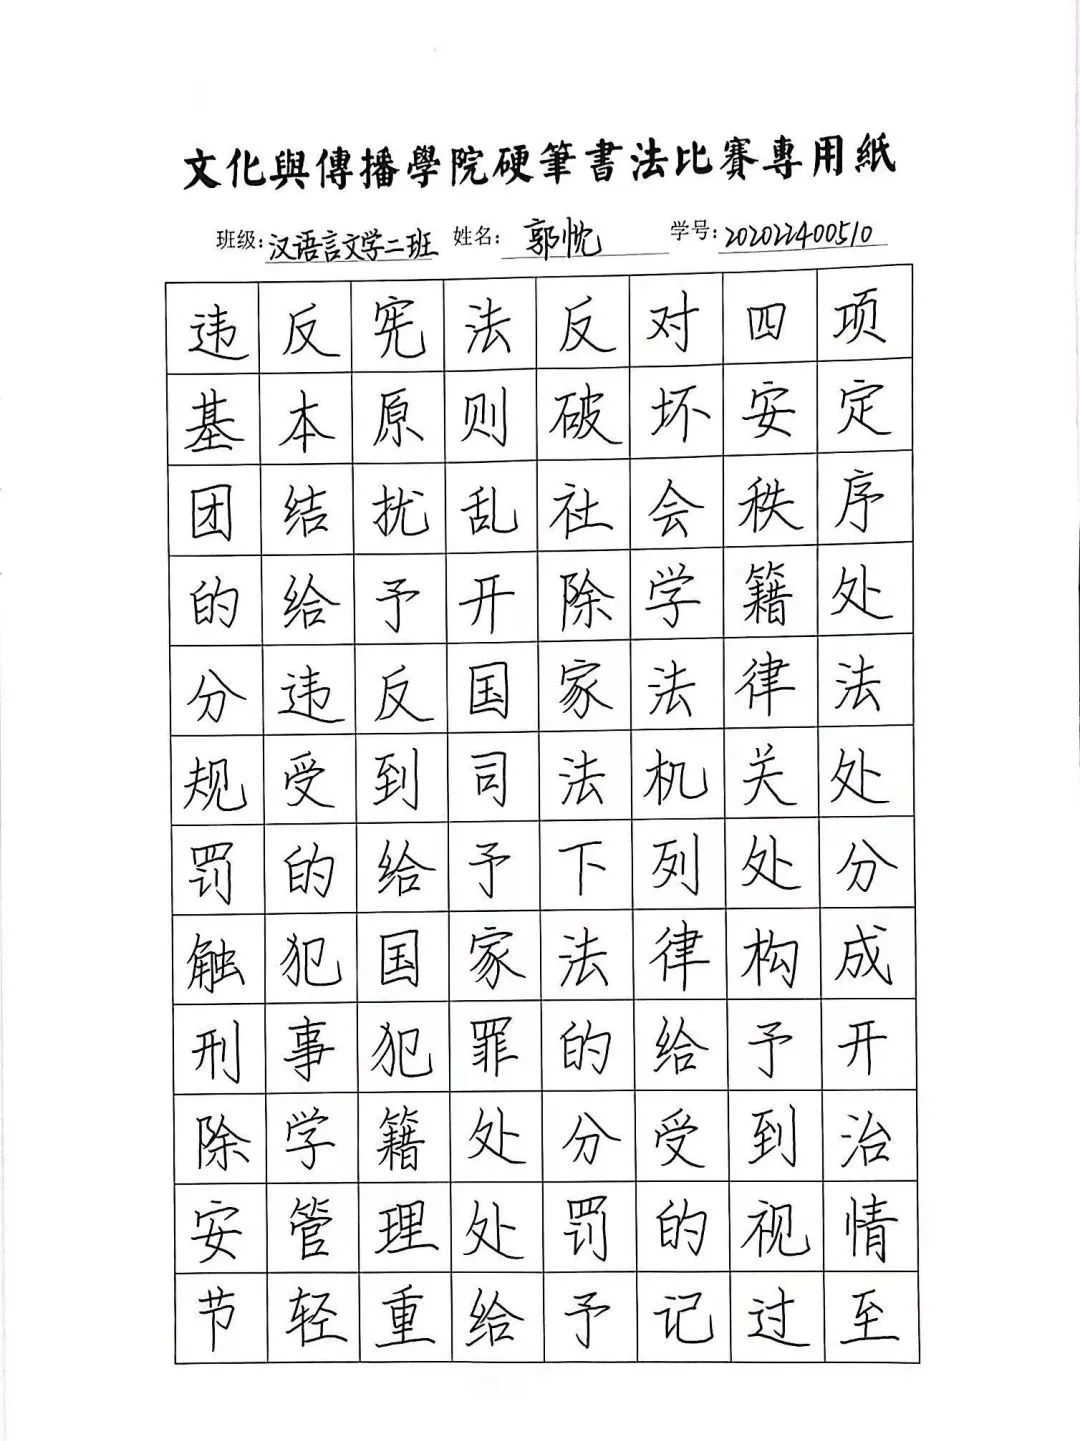 文化與傳播學院硬筆書法比賽專用紙
班级:汉语言文学二班 姓名:郭忱 学号:202022400510
违反宪法反对四项
基本原则破坏安定
团结扰乱社会秩序
的给予开除学籍处
分违反国家法律法
规受到司法机关处
罚的给予下列处分
触犯国家法律构成
刑事犯罪的给予开
除学籍处分受到治
安管理处罚的视情
节轻重给予记过至